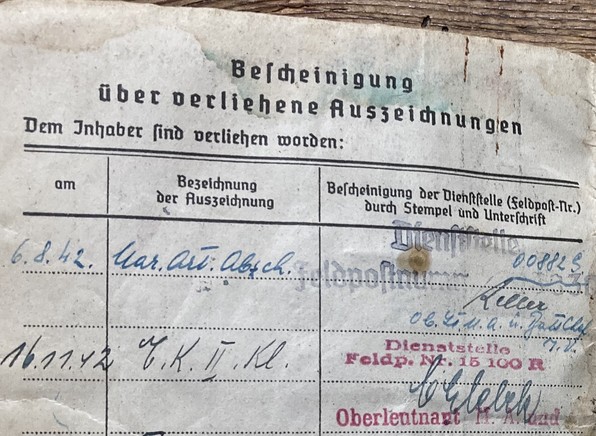 Bescheinigung
über verliehene Auszeichnungen
Dem Inhaber sind verliehen worden:
am
Bezeichnung
der Auszeichnung
Bescheinigung der Dienststelle (Feldpost-Nr.)
durch Stempel und Unterschrift
6.8.42. Mar. Art. Abzch.
Dienststelle
Feldpostnummer
Keller
16.11.42 E.K. II. Kl.
Dienststelle
Feldp. Nr. 15 100 R
Oberleutnant M.